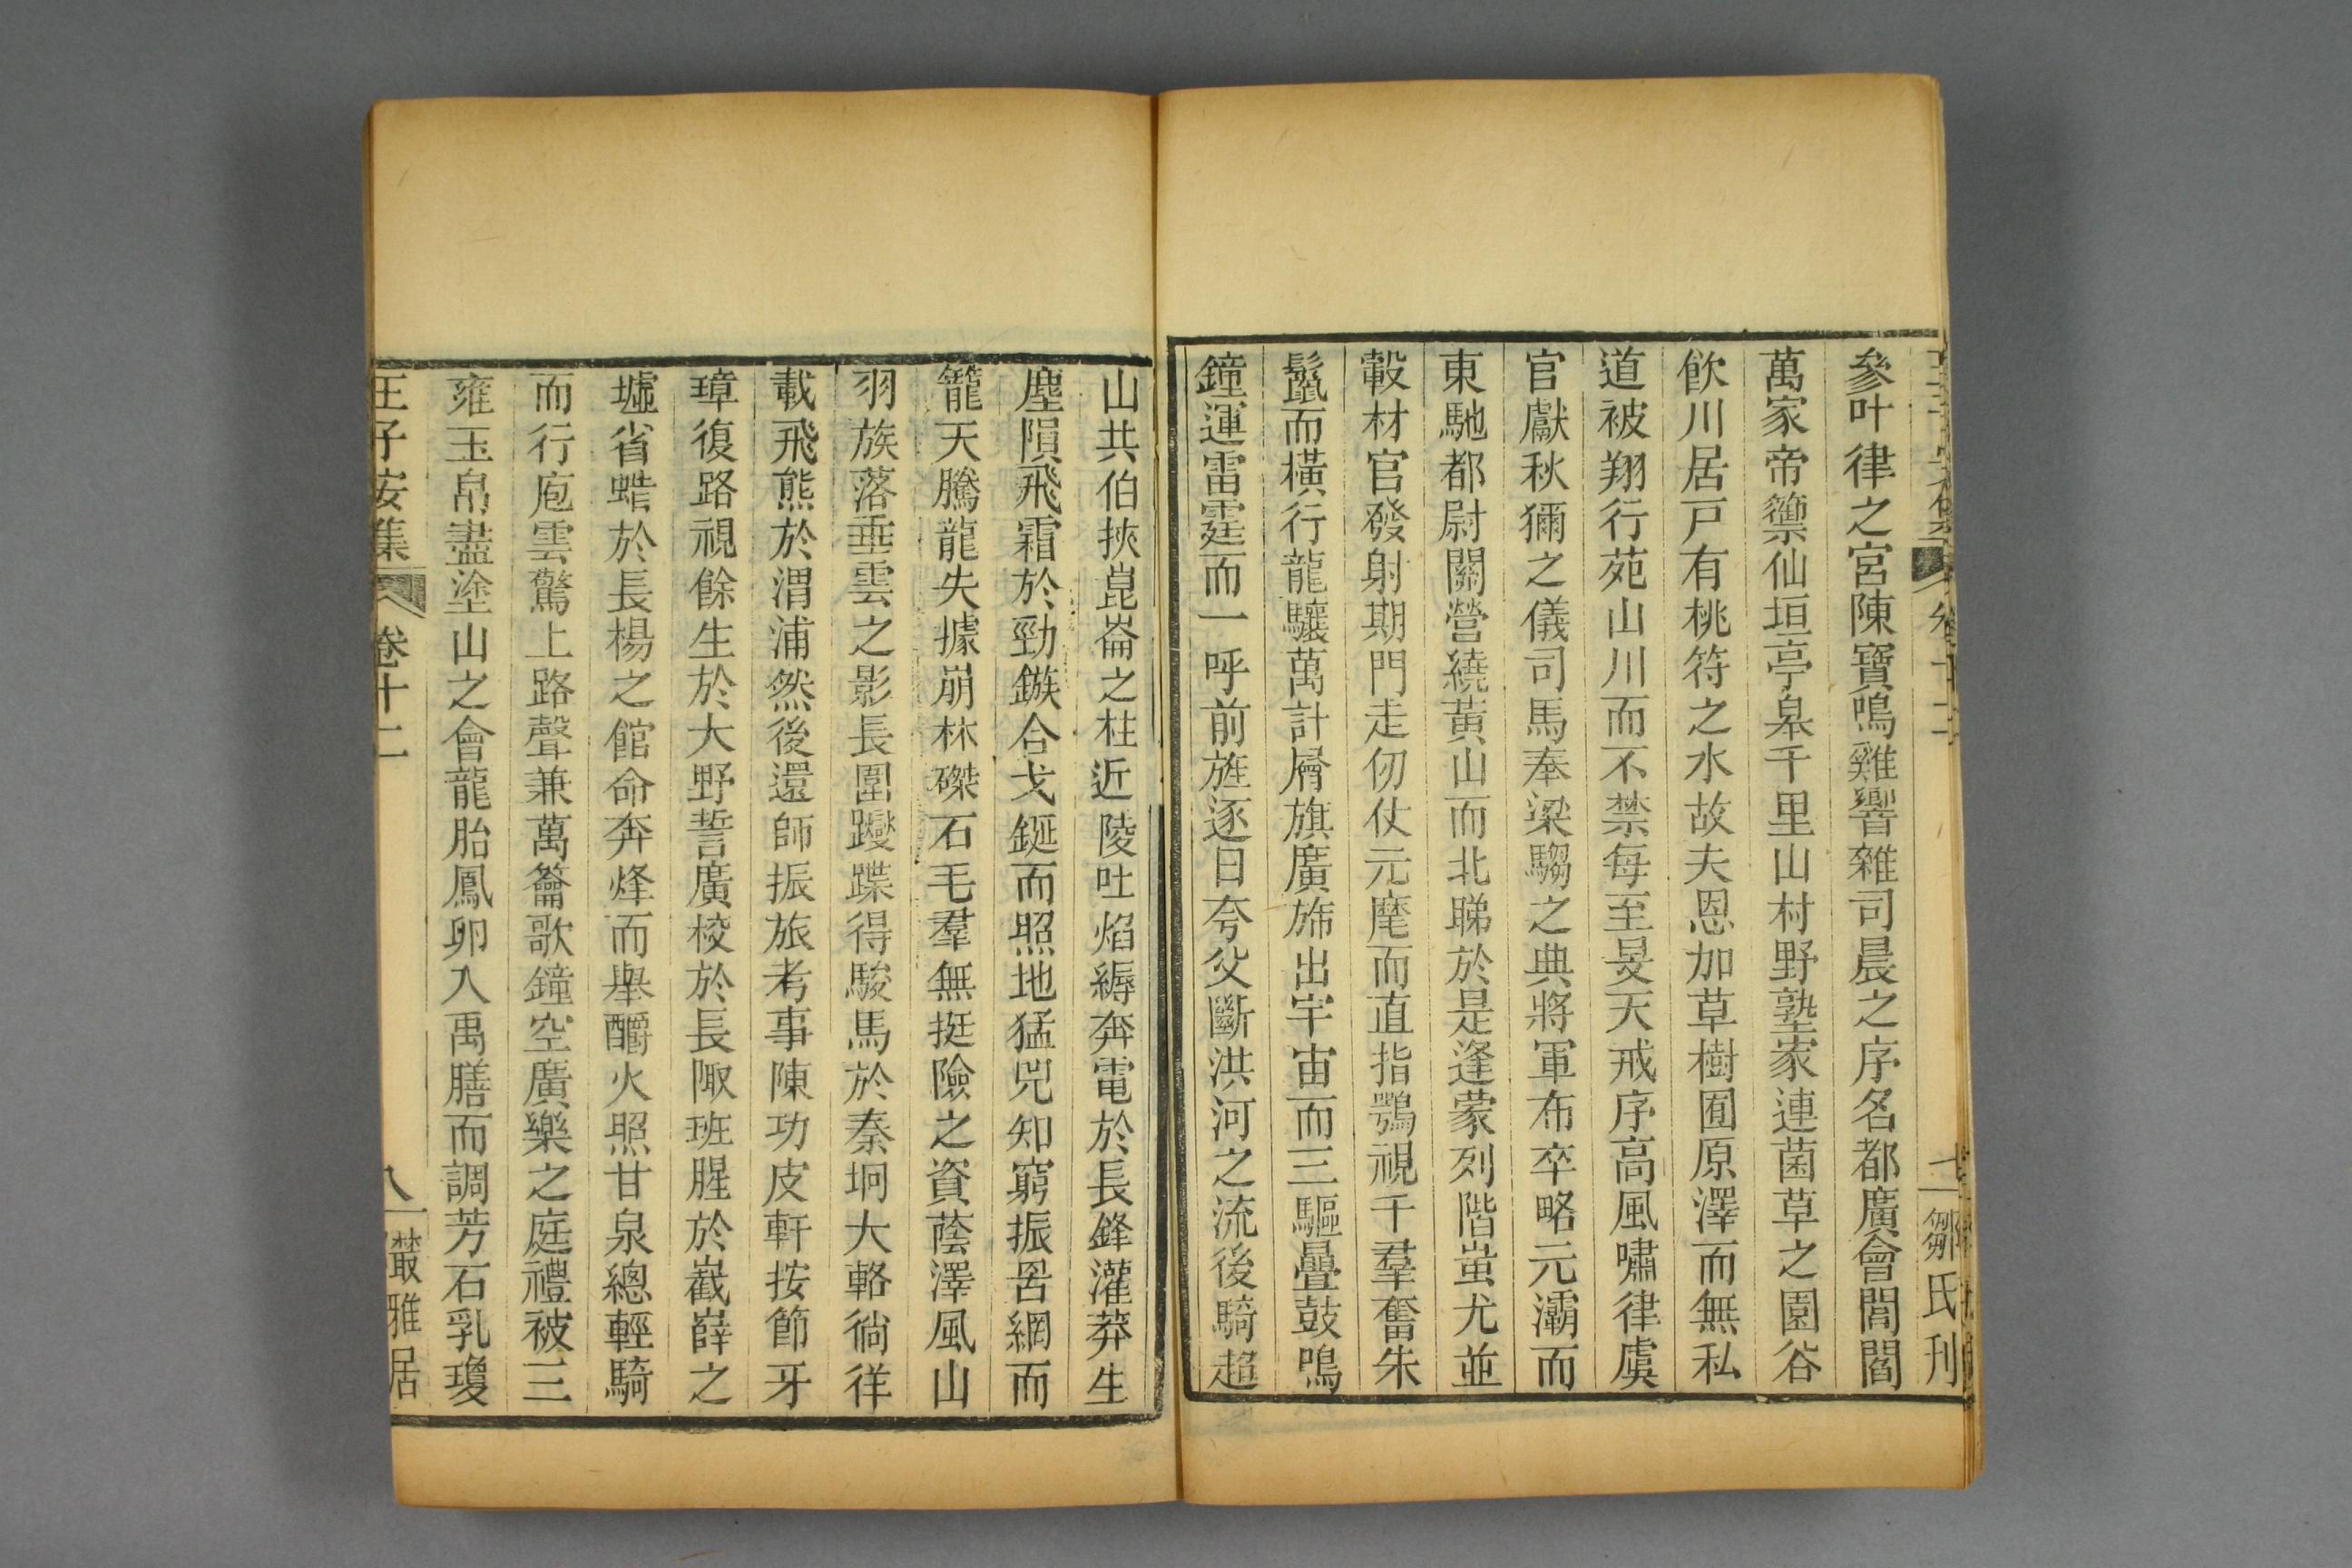 鄒氏刊
參叶律之宮陳寶鳴雞響雜司晨之序名都廣會閭閻
萬家帝籞仙垣亭皋千里山村野塾家連菌草之園谷
飲川居戸有桃符之水故夫恩加草樹囿原澤而無私
道被翔行苑山川而不禁每至旻天戒序高風嘯律虞
官獻秋獮之儀司馬奉梁騶之典將軍布卒略元灞而
東馳都尉關營繞黃山而北睇於是逢蒙列階蚩尤並
轂材官發射期門走仞仗元麾而直指鶚視千羣奮朱
鬣而橫行龍驤萬計屑旗廣斾出宇宙而三驅疊鼓鳴
鐘運雷霆而一呼前旌逐日夸父斷洪河之流後騎超
山共伯挾崑崙之柱近陵吐焰縟奔電於長鋒灌莽生
塵隕飛霜於勁鏃合戈鋋而照地猛兕知窮振罟網而
籠天騰龍失據崩林磔石毛羣無挺險之資蔭澤風山
羽族落垂雲之影長圍躞蹀得駿馬於秦坰大輅徜徉
載飛熊於渭浦然後還師振旅考事陳功皮軒按節牙
璋復路視餘生於大野誓廣校於長陬班腥於嶻嶭之
墟省蜡於長楊之館命奔烽而舉釂火照甘泉總輕騎
而行庖雲驚上路聲兼萬籥歌鐘空廣樂之庭禮被三
雍玉帛盡塗山之會龍胎鳳卵入禹膳而調芳石乳瓊
王子安集 卷十二 八 叢雅居